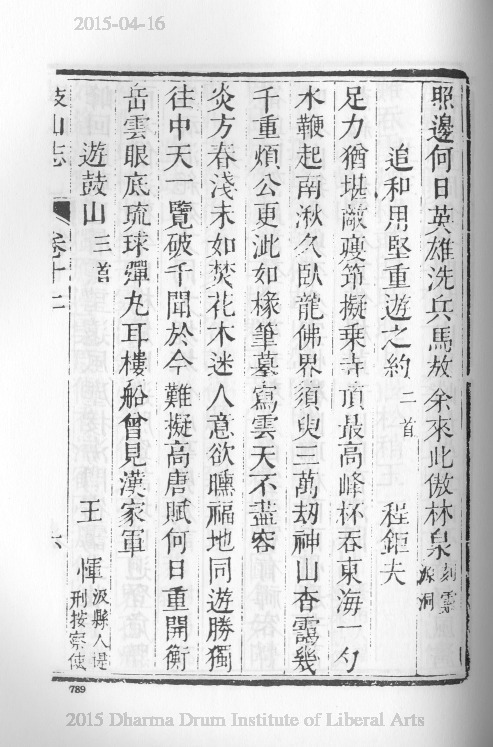 2015-04-16
照邊何日英雄洗兵馬放余來此傲林泉 刻靈源洞
追和用堅重遊之約 二首 程鉅夫
足力猶堪敵瘦筇擬乘寺頂最高峰杯吞東海一勺
水鞭起南湫久臥龍佛界須臾三萬劫神山杳靄幾
千重煩公更泚如椽筆摹寫雲天不盡容
炎方春淺未如焚花木迷人意欲曛福地同遊勝獨
往中天一覽破千聞於今難擬高唐賦何日重開衡
岳雲眼底琉球彈丸耳樓船曾見漢家軍
遊鼓山 三首 王 惲 汲縣人提刑按察使
鼓山志 卷十二 六
789
2015 Dharma Drum Institute of Liberal Arts